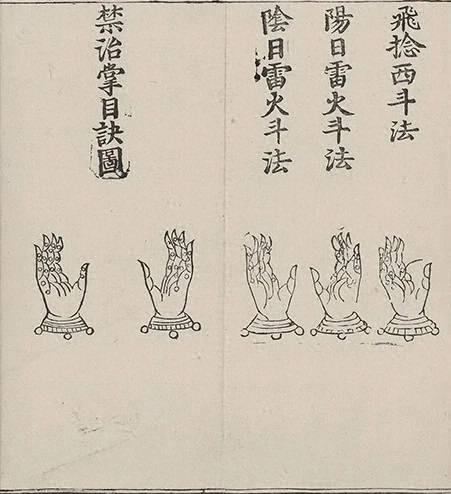 飛捻西斗法
陽日雷火斗法
陰日雷火斗法
禁治掌目訣圖